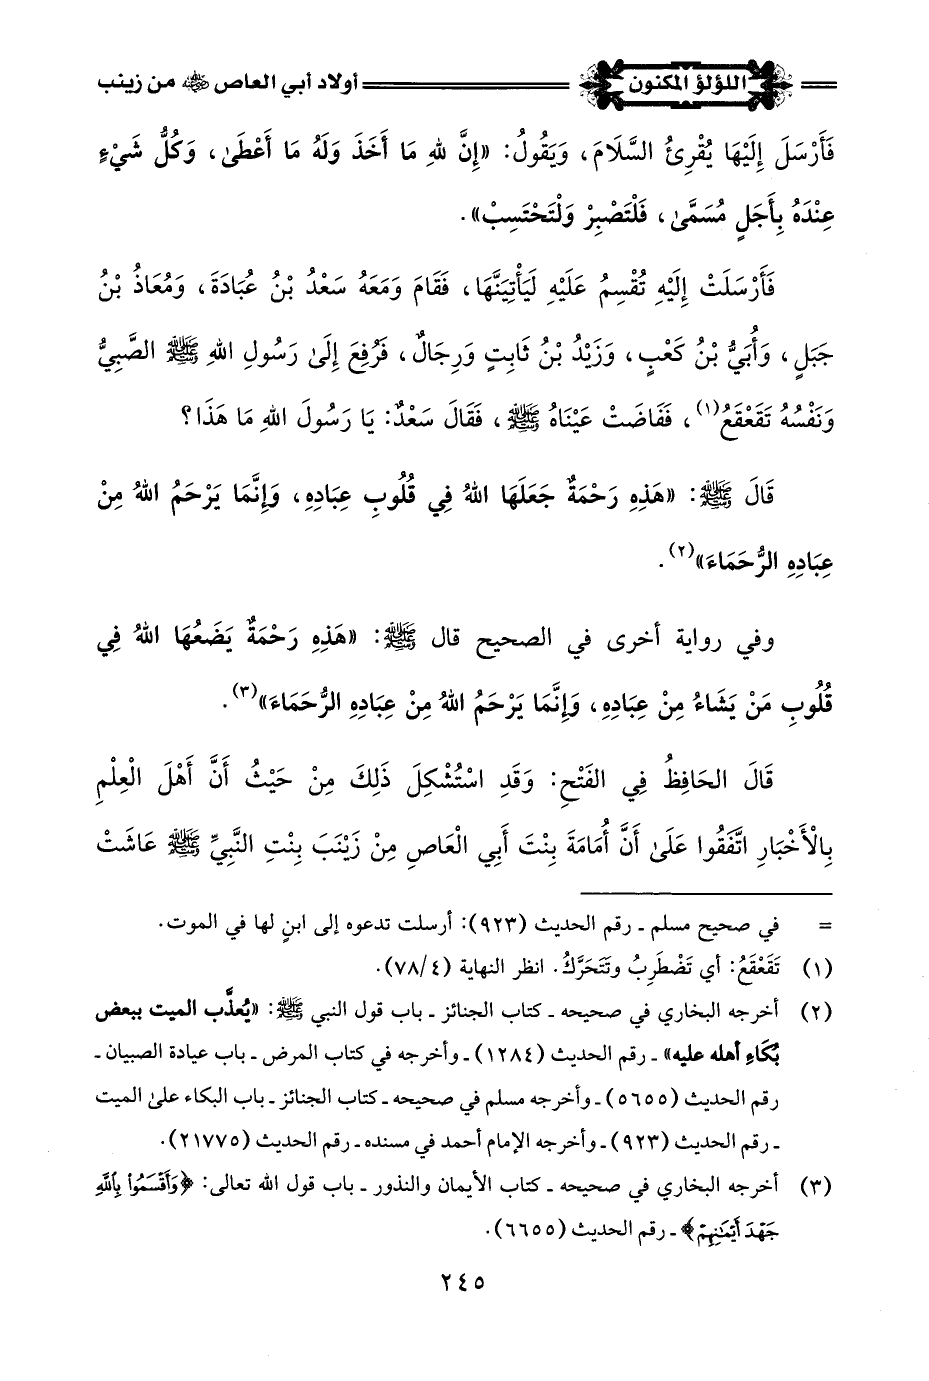 اللؤلؤ المكنون أولاد أبي العاص ﷺ من زينب
فَأَرْسَلَ إِلَيْهَا يُقْرِئُ السَّلَامَ، وَيَقُولُ: «إِنَّ للهِ مَا أَخَذَ وَلَهُ مَا أَعْطَىٰ، وَكُلُّ شَيْءٍ
عِنْدَهُ بِأَجَلٍ مُسَمًّىٰ، فَلْتَصْبِرْ وَلْتَحْتَسِبْ».
فَأَرْسَلَتْ إِلَيْهِ تُقْسِمُ عَلَيْهِ لَيَأْتِيَنَّهَا، فَقَامَ وَمَعَهُ سَعْدُ بْنُ عُبَادَةَ، وَمُعَاذُ بْنُ
جَبَلٍ، وَأُبَيُّ بْنُ كَعْبٍ، وَزَيْدُ بْنُ ثَابِتٍ وَرِجَالٌ، فَرُفِعَ إِلَىٰ رَسُولِ اللهِ ﷺ الصَّبِيُّ
وَنَفْسُهُ تَقَعْقَعُ(١)، فَفَاضَتْ عَيْنَاهُ ﷺ، فَقَالَ سَعْدٌ: يَا رَسُولَ اللهِ مَا هَذَا؟
قَالَ ﷺ: «هَذِهِ رَحْمَةٌ جَعَلَهَا اللهُ فِي قُلُوبِ عِبَادِهِ، وَإِنَّمَا يَرْحَمُ اللهُ مِنْ
عِبَادِهِ الرُّحَمَاءَ»(٢).
وفي رواية أخرى في الصحيح قال ﷺ: «هَذِهِ رَحْمَةٌ يَضَعُهَا اللهُ فِي
قُلُوبِ مَنْ يَشَاءُ مِنْ عِبَادِهِ، وَإِنَّمَا يَرْحَمُ اللهُ مِنْ عِبَادِهِ الرُّحَمَاءَ»(٣).
قَالَ الحَافِظُ فِي الفَتْحِ: وَقَدِ اسْتُشْكِلَ ذَلِكَ مِنْ حَيْثُ أَنَّ أَهْلَ الْعِلْمِ
بِالْأَخْبَارِ اتَّفَقُوا عَلَىٰ أَنَّ أُمَامَةَ بِنْتَ أَبِي الْعَاصِ مِنْ زَيْنَبَ بِنْتِ النَّبِيِّ ﷺ عَاشَتْ
= في صحيح مسلم ـ رقم الحديث (٩٢٣): أرسلت تدعوه إلى ابنٍ لها في الموت.
(١) تَقَعْقَعُ: أي تَضْطَرِبُ وتَتَحَرَّكُ. انظر النهاية (٧٨/٤).
(٢) أخرجه البخاري في صحيحه ـ كتاب الجنائز ـ باب قول النبي ﷺ: «يُعذَّب الميت ببعض
بُكَاءِ أهله عليه» ـ رقم الحديث (١٢٨٤) ـ وأخرجه في كتاب المرض ـ باب عيادة الصبيان ـ
رقم الحديث (٥٦٥٥) ـ وأخرجه مسلم في صحيحه ـ كتاب الجنائز ـ باب البكاء على الميت
ـ رقم الحديث (٩٢٣) ـ وأخرجه الإمام أحمد في مسنده ـ رقم الحديث (٢١٧٧٥).
(٣) أخرجه البخاري في صحيحه ـ كتاب الأيمان والنذور ـ باب قول الله تعالى: ﴿وَأَقْسَمُوا۟ بِٱللَّهِ
جَهْدَ أَيْمَـٰنِهِمْ﴾ ـ رقم الحديث (٦٦٥٥).
٢٤٥